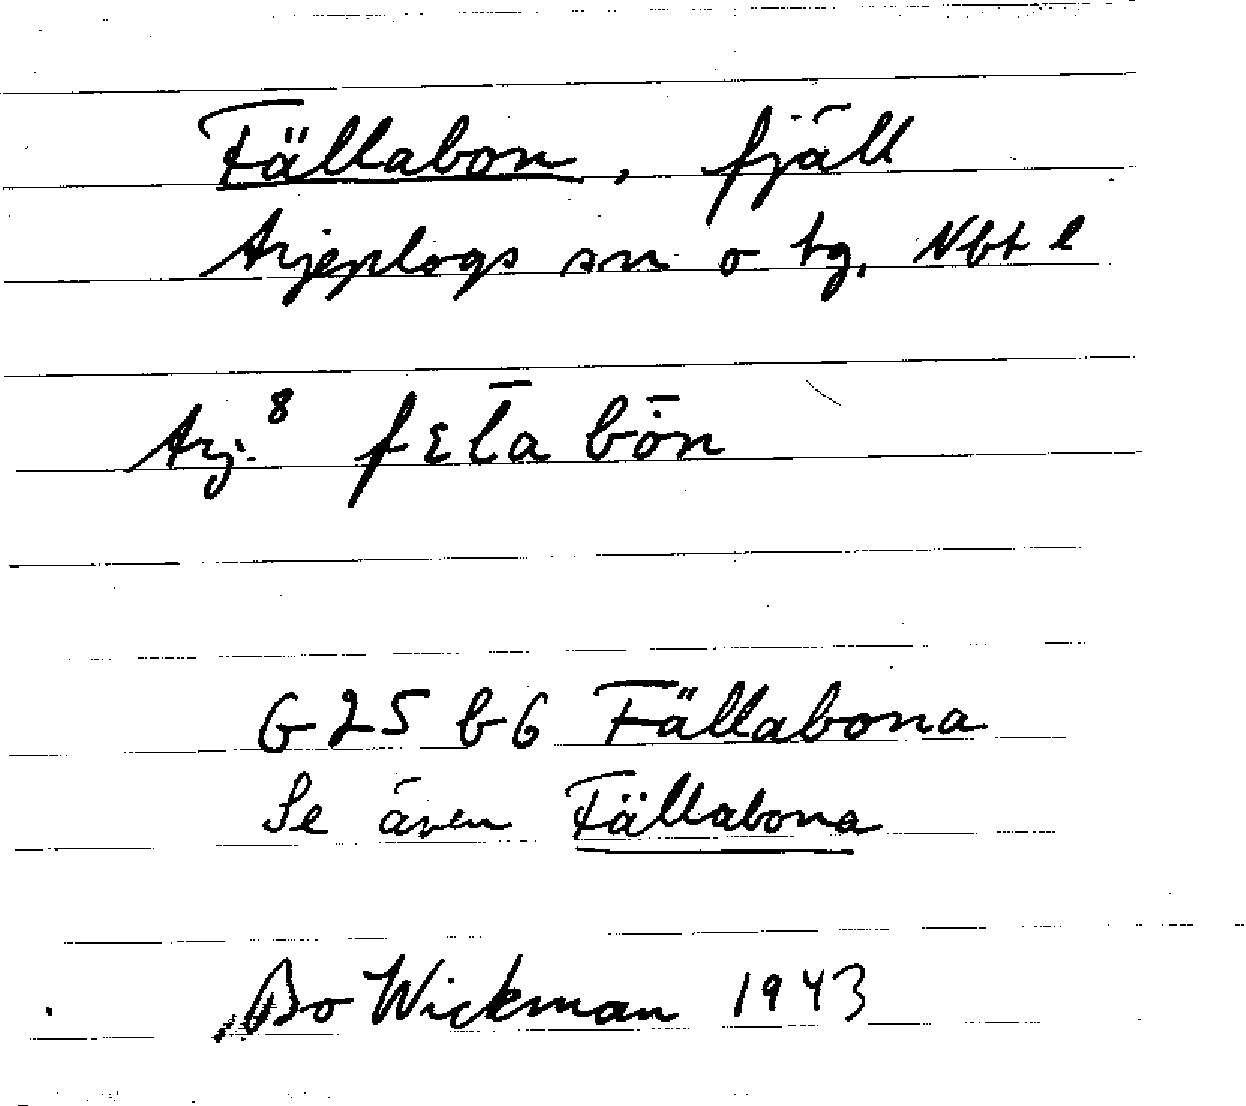 Fällabon, fjäll
Arjeplogs sn o tg. Nbt l
Arj.⁸ fɛl̄a bȱn
G 25 b 6 Fällabona
Se även Fällabona
Bo Wickman 1943